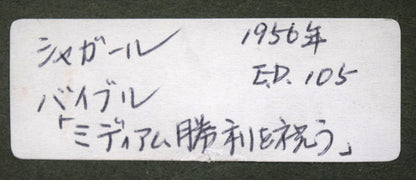 シャガール 1956年
バイブル E.D. 105
「ミディアム勝利を祝う」